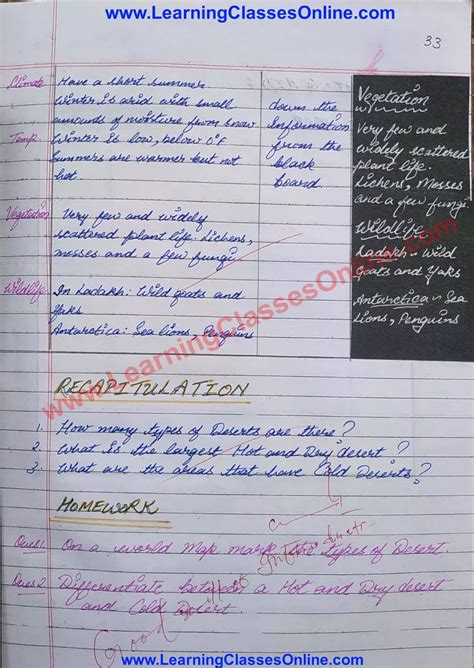 www.LearningClassesOnline.com
33
Climate
Have a short summer
Winter is arid with small
amounts of moisture from snow
Temp.
Winter is low, below 0°F
Summers are warmer but not
hot.
Vegetation
Very few and widely
scattered plant life. Lichens,
mosses and a few fungi.
Wildlife
In Ladakh: Wild goats and
Yaks
Antarctica: Sea lions, Penguins
down the
Information
from the
black
board.
Vegetation
Very few and
widely scattered
plant life.
Lichens, Mosses
and a few fungi
Wildlife
Ladakh - Wild
Goats and Yaks
Antarctica - Sea
Lions, Penguins
www.LearningClassesOnline.com
RECAPITULATION
1. How many types of Deserts are there?
2. What is the largest Hot and Dry desert?
3. What are the areas that have Cold Deserts?
HOMEWORK
Ques1. On a world Map mark the types of Desert.
Ques2. Differentiate between a Hot and Dry desert
and Cold Desert.
Good
www.LearningClassesOnline.com